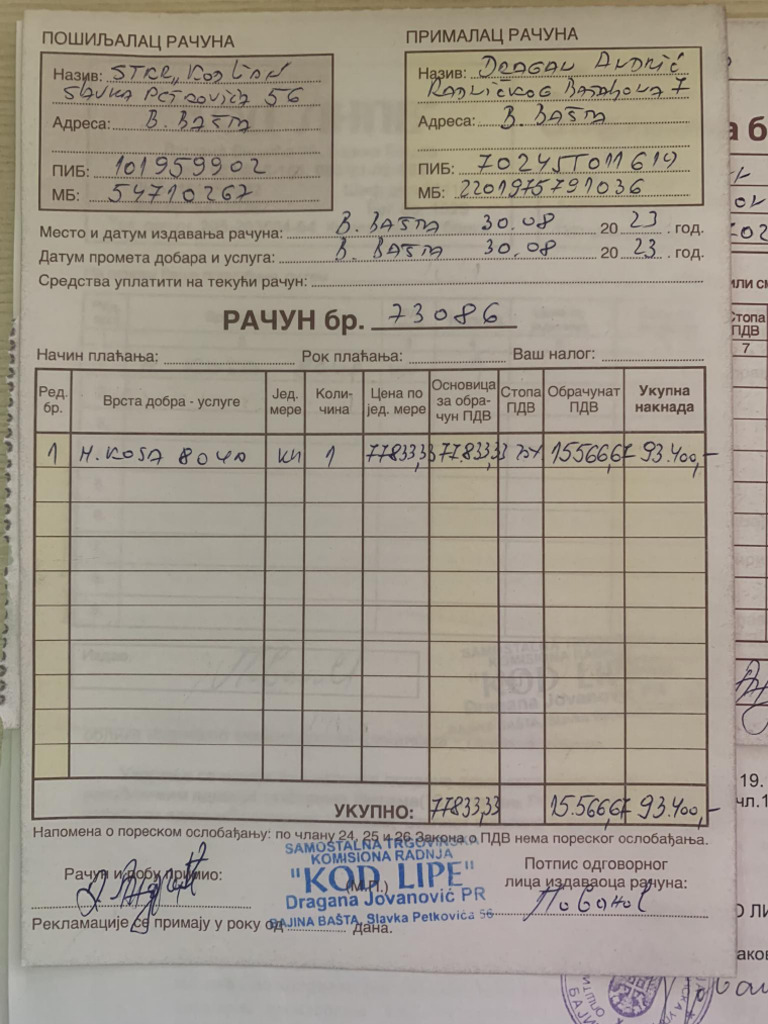 ПОШИЉАЛАЦ РАЧУНА
Назив: STKR „KOD LIPE
SLAVKA PETKOVIĆA 56
Адреса: B. BAŠTA
ПИБ: 101959902
МБ: 54710267
ПРИМАЛАЦ РАЧУНА
Назив: DRAGAN ANDRIĆ
RADNIČKOG BATALJONA 7
Адреса: B. BAŠTA
ПИБ:
МБ:
Место и датум издавања рачуна: B. BAŠTA 30.08 20 23 . год.
Датум промета добара и услуга: B. BAŠTA 30.08 20 23 . год.
Средства уплатити на текући рачун:
РАЧУН бр. 73086
Начин плаћања: Рок плаћања: Ваш налог:
Ред. бр. Врста добра - услуге Јед. мере Коли-чина Цена по јед. мере Основица за обра-чун ПДВ Стопа ПДВ Обрачунат ПДВ Укупна накнада
1 M. KOSA 1 77833,33 77833,33 15566,67 93.400,-
УКУПНО: 77833,33 15.566,67 93.400,-
Напомена о пореском ослобађању: по члану 24, 25 и 26 Закона о ПДВ нема пореског ослобађања.
SAMOSTALNA TRGOVINSKA
KOMISIONA RADNJA
"KOD LIPE"
Dragana Jovanović PR
BAJINA BAŠTA, Slavka Petkovića 56
Рачун и робу примио:
(М.П.)
Потпис одговорног
лица издаваоца рачуна:
Рекламације се примају у року од дана.
Стопа
ПДВ
7
19.